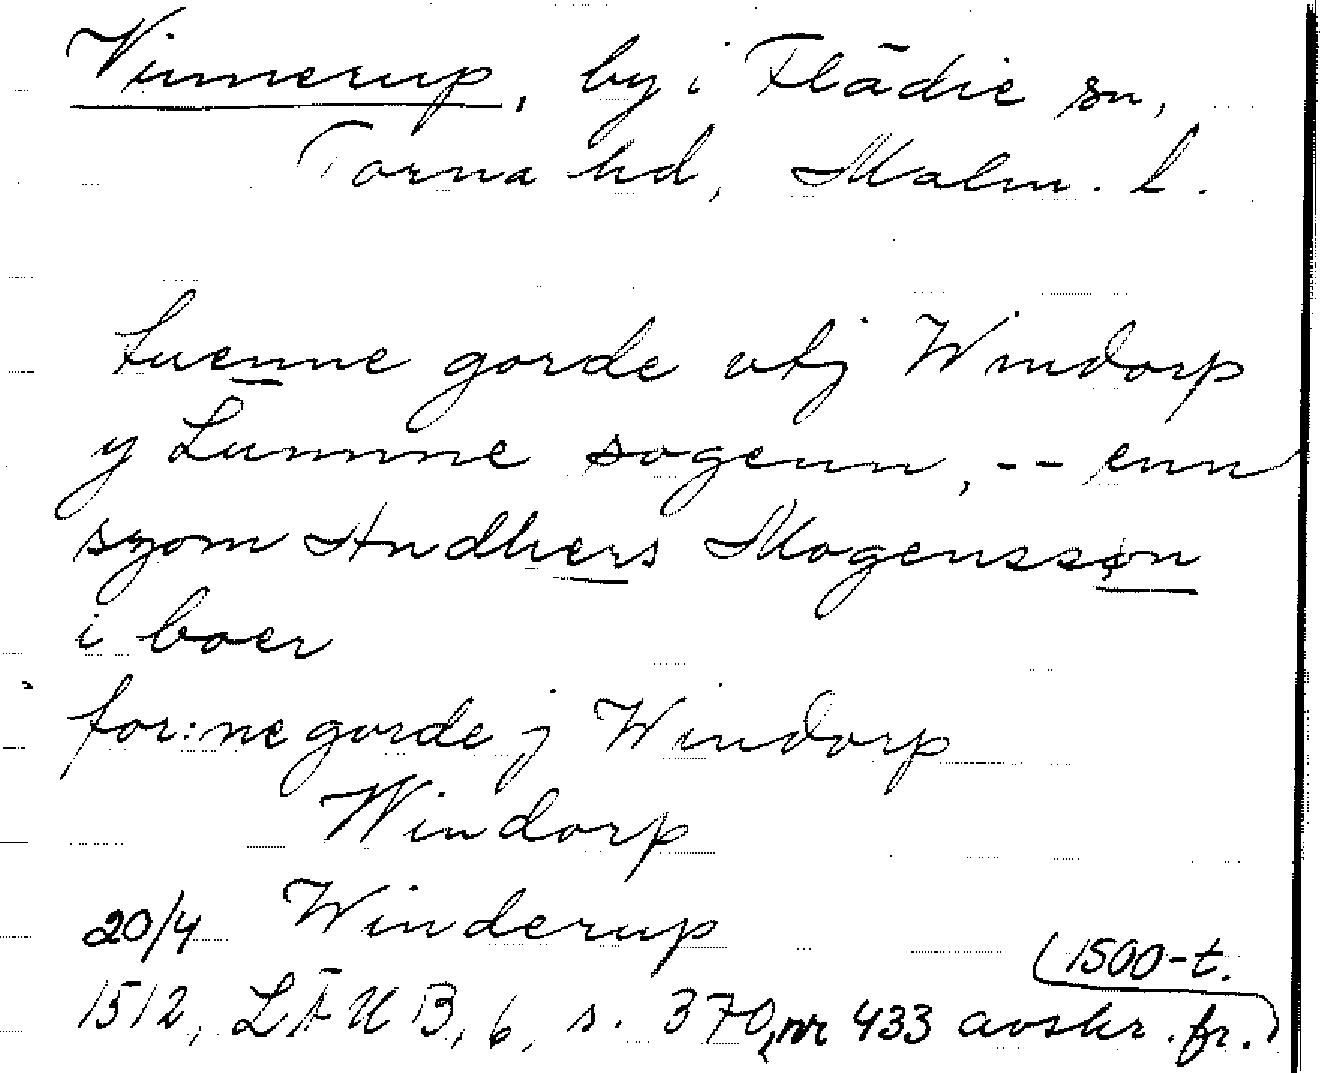 Vinnerup, by i Flädie sn,
Torna hd, Malm. l.
tuenne gorde vtj Windorp
y Lumne sogenn, -- enn
szom Andhers Mogenssøn
i boer
for:ne gorde j Windorp
Windorp
20/4 Winderup
(1500-t.
1512, LÄUB, 6, s. 370, nr 433 avskr. fr.)